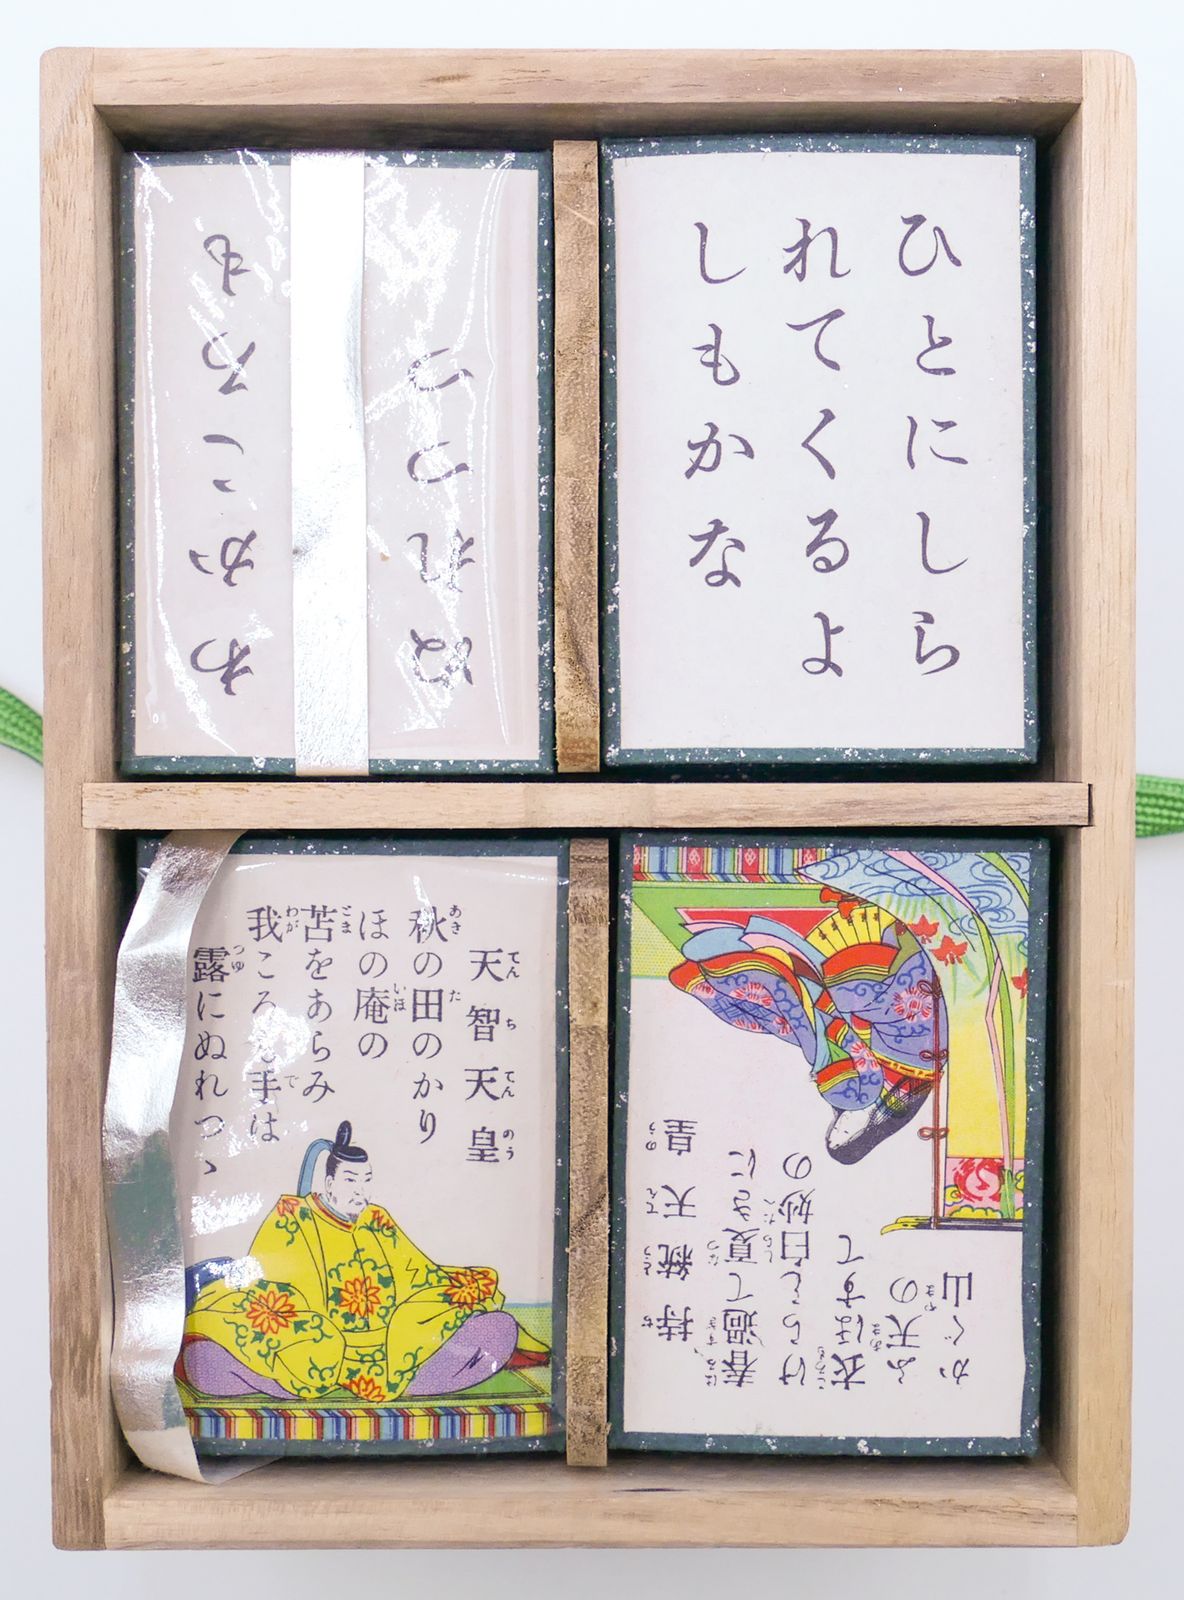 わかころも
ぬれつつ
ひとにしら
れてくるよ
しもかな
天智天皇
秋の田のかり
ほの庵の
苫をあらみ
我ころも手は
露にぬれつゝ
持統天皇
春過て夏きに
けらし白妙の
衣ほすて
ふ天の
かぐ山